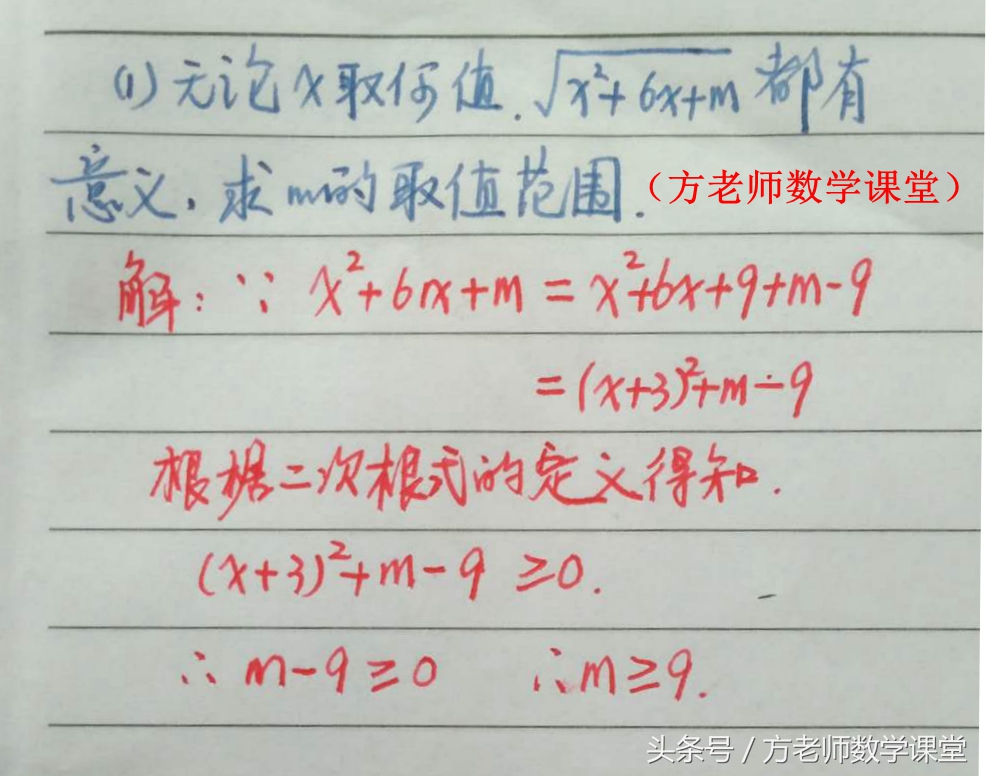 (1)无论x取何值.√(x²+6x+m) 都有
意义,求m的取值范围.(方老师数学课堂)
解:∵ x²+6x+m=x²+6x+9+m-9
=(x+3)²+m-9
根据二次根式的定义得知.
(x+3)²+m-9≥0.
∴m-9≥0 ∴m≥9.
头条号/方老师数学课堂